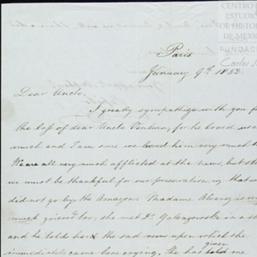 CENTRO
ESTUDIO
DE HISTOR
DE MEXIC
FUNDAC
Carlos S
Paris
January 9th 1852
Dear Uncle,
I greatly sympathise with you for
the loss of dear Uncle Ventura, for he loved us
much and I am sure we loved him very much
We are all very much afflicted at the news, but still
we must be thankful for our preservation in that we
did not go by the Amazon. Madame Alvarez is very
much grieved too, she met Dr.
and he told her the sad news upon which she
immediately came here crying. She has given
told me